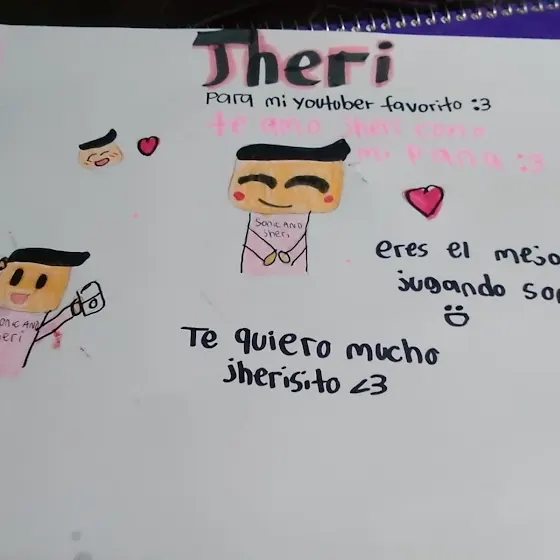 Jheri
Para mi youtuber favorito :3
te amo jheri como
mi pana :3
Sonic AND
Jheri
eres el mejo
jugando son
onic AND
eri
Te quiero mucho
jherisito <3